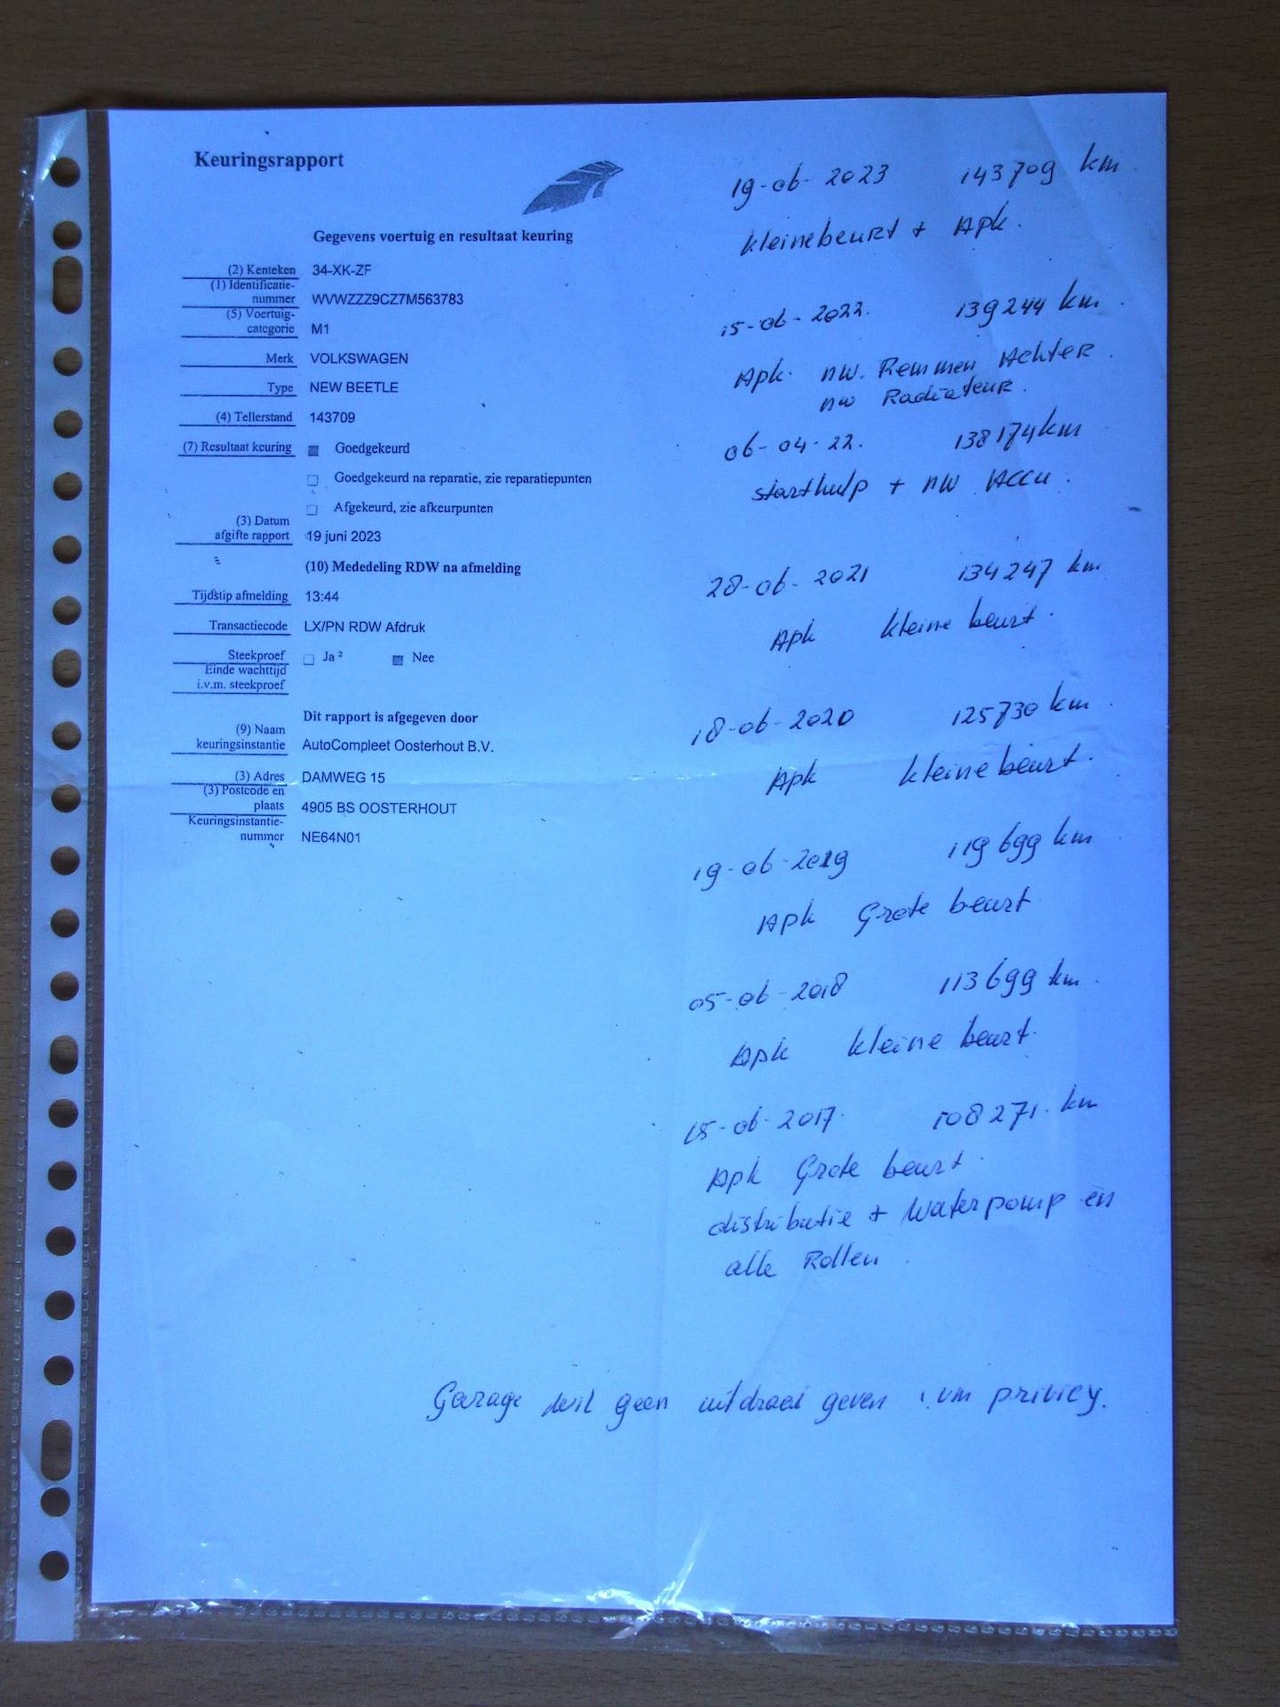 Keuringsrapport
Gegevens voertuig en resultaat keuring
(2) Kenteken 34-XK-ZF
(1) Identificatie-
nummer WVWZZZ9CZ7M563783
(5) Voertuig-
categorie M1
Merk VOLKSWAGEN
Type NEW BEETLE
(4) Tellerstand 143709
(7) Resultaat keuring Goedgekeurd
Goedgekeurd na reparatie, zie reparatiepunten
Afgekeurd, zie afkeurpunten
(3) Datum
afgifte rapport 19 juni 2023
(10) Mededeling RDW na afmelding
Tijdstip afmelding 13:44
Transactiecode LX/PN RDW Afdruk
Steekproef Ja ² Nee
Einde wachttijd
i.v.m. steekproef
Dit rapport is afgegeven door
(9) Naam
keuringsinstantie AutoCompleet Oosterhout B.V.
(3) Adres DAMWEG 15
(3) Postcode en
plaats 4905 BS OOSTERHOUT
Keuringsinstantie-
nummer NE64N01
19-06-2023 143709 km
kleinebeurt + Apk.
15-06-2022. 139244 km
Apk. nw. Remmen Achter
nw Radiateur.
06-04-22. 138174km
starthulp + nw Accu.
28-06-2021 134247 km
Apk kleine beurt.
18-06-2020 125730 km
Apk kleine beurt.
19-06-2019 119699 km
Apk Grote beurt
05-06-2018 113699 km.
Apk kleine beurt.
15-06-2017. 108271. km
Apk Grote beurt.
distributie + Waterpomp en
alle Rollen.
Garage wil geen uitdraai geven ivm privicy.